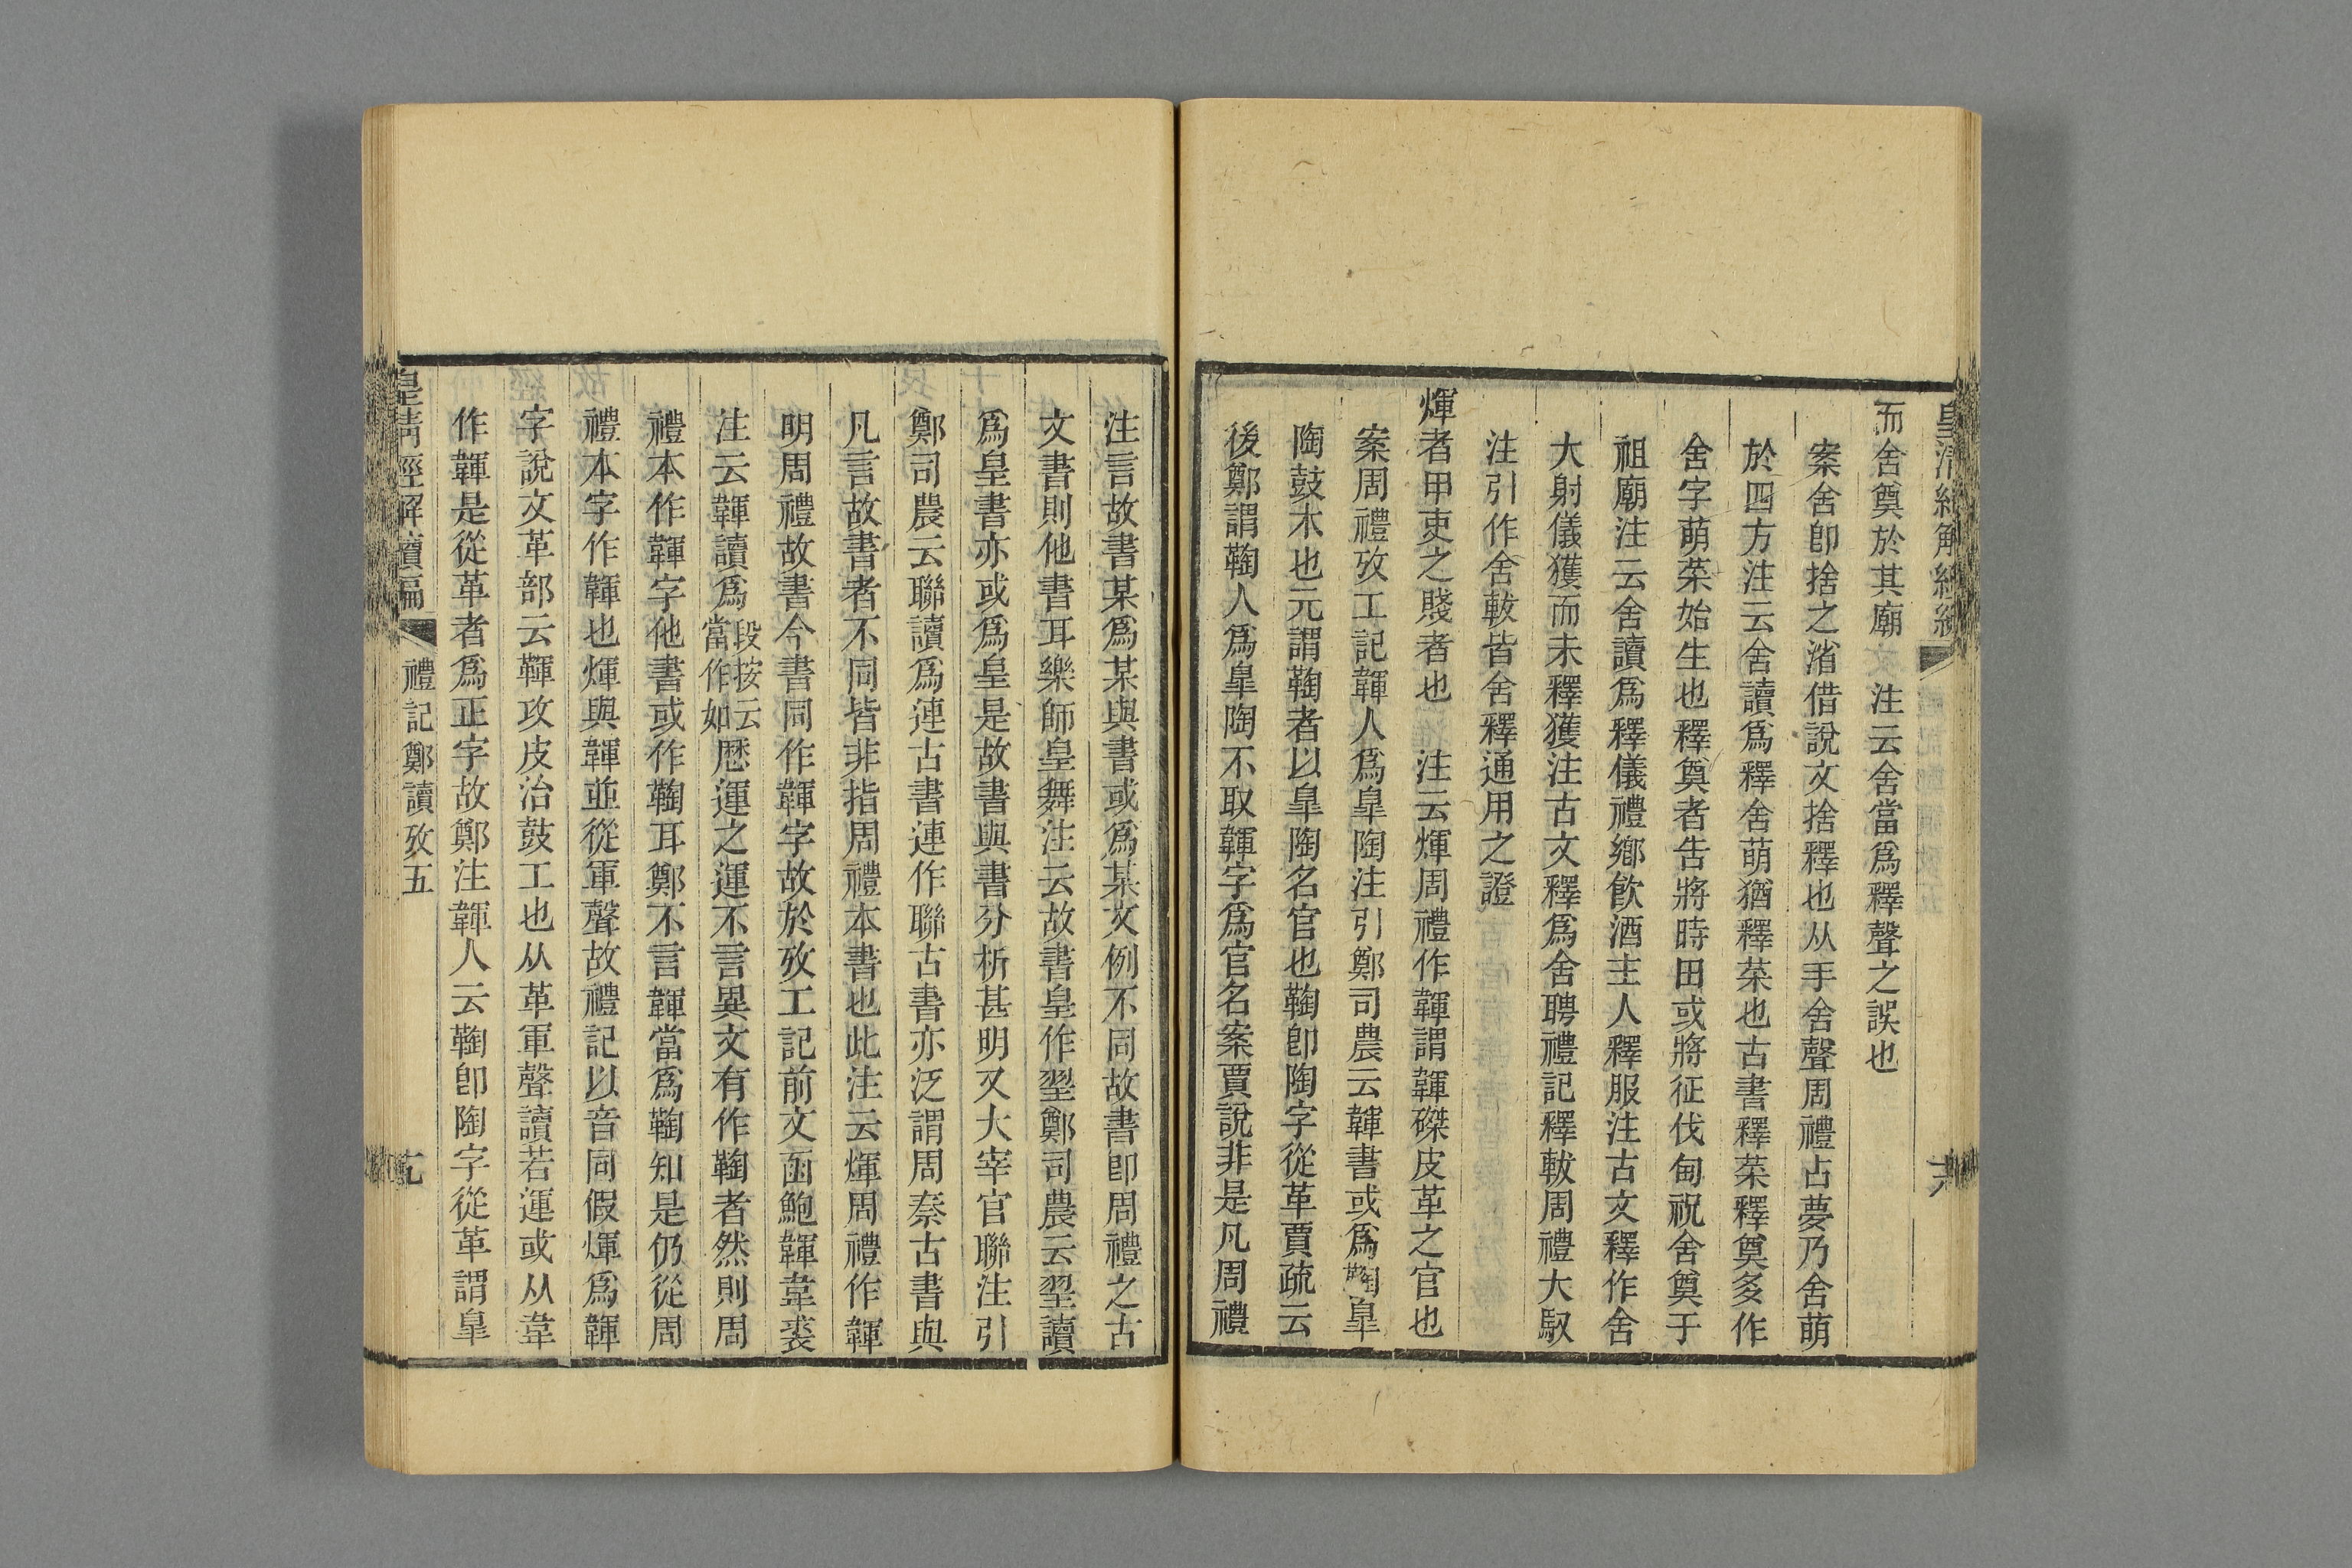 皇清經解續
六
而舍奠於其廟　注云舍當爲釋聲之誤也
案舍卽捨之渻借說文捨釋也从手舍聲周禮占夢乃舍萌
於四方注云舍讀爲釋舍萌猶釋菜也古書釋菜釋奠多作
舍字萌菜始生也釋奠者告將時田或將征伐甸祝舍奠于
祖廟注云舍讀爲釋儀禮鄉飮酒主人釋服注古文釋作舍
大射儀獲而未釋獲注古文釋爲舍聘禮記釋軷周禮大馭
注引作舍軷皆舍釋通用之證
煇者甲吏之賤者也　注云煇周禮作韗謂韗磔皮革之官也
案周禮攷工記韗人爲皐陶注引鄭司農云韗書或爲鞠皐
陶鼓木也元謂鞠者以皐陶名官也鞠卽陶字從革賈疏云
後鄭謂鞠人爲皐陶不取韗字爲官名案賈說非是凡周禮
注言故書某爲某與書或爲某文例不同故書卽周禮之古
文書則他書耳樂師皇舞注云故書皇作䍿鄭司農云䍿讀
爲皇書亦或爲皇是故書與書分析甚明又大宰官聯注引
鄭司農云聯讀爲連古書連作聯古書亦泛謂周秦古書與
凡言故書者不同皆非指周禮本書也此注云煇周禮作韗
明周禮故書今書同作韗字故於攷工記前文函鮑韗韋裘
注云韗讀爲段按云當作如歷運之運不言異文有作鞠者然則周
禮本作韗字他書或作鞠耳鄭不言韗當爲鞠知是仍從周
禮本字作韗也煇與韗並從軍聲故禮記以音同假煇爲韗
字說文革部云韗攻皮治鼓工也从革軍聲讀若運或从韋
作韗是從革者爲正字故鄭注韗人云鞠卽陶字從革謂皐
皇清經解續編　禮記鄭讀攷五